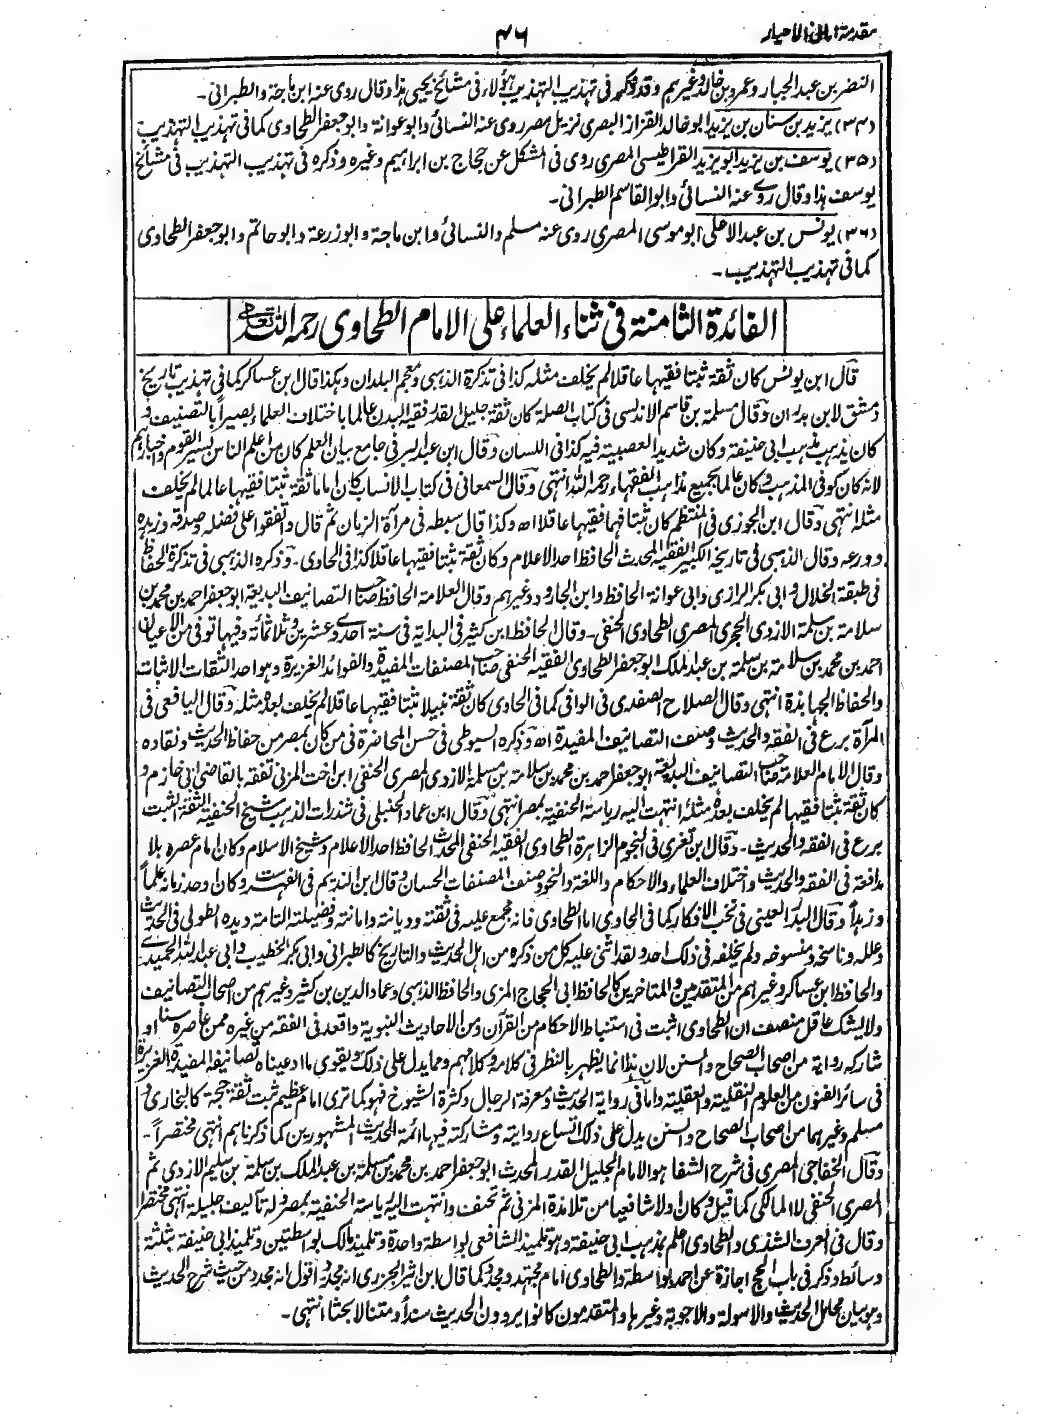 مقدمة امانی الاحبار
۴۶
النضر بن عبد الجبار وعمرو بن خالد وغيرهم وقد ذكر في تهذيب التهذيب هؤلاء في مشائخ يحيى هذا وقال روى عنه ابن ماجة والطبراني۔
(۳۴) يزيد بن سنان بن يزيد ابو خالد القزاز البصرى نزيل مصر روى عنه النسائى وابو عوانة وابو جعفر الطحاوى كما فى تهذيب التهذيب
(۳۵) يوسف بن يزيد ابو يزيد القراطيسى المصرى روى فى المشكل عن حجاج بن ابراهيم وغيره وذكره فى تهذيب التهذيب فى مشائخ
يوسف هذا وقال روى عنه النسائى وابو القاسم الطبرانى۔
(۳۶) يونس بن عبد الاعلى ابو موسى المصرى روى عنه مسلم والنسائى وابن ماجة وابو زرعة وابو حاتم وابو جعفر الطحاوى
كما فى تهذيب التهذيب۔
الفائدة الثامنة فى ثناء العلماء على الامام الطحاوى رحمه الله تعالى
قال ابن يونس كان ثقة ثبتا فقيها عاقلا لم يخلف مثله كذا فى تذكرة الذهبى ومعجم البلدان وهكذا قال ابن عساكر كما فى تهذيب تاريخ
دمشق لابن بدران وقال مسلمة بن قاسم الاندلسى فى كتاب الصلة كان ثقة جليل القدر فقيه البدن عالما باختلاف العلماء بصيرا بالتصنيف و
كان يذهب مذهب ابى حنيفة وكان شديد العصبية فيه كذا فى اللسان وقال ابن عبد البر فى جامع بيان العلم كان من اعلم الناس بسير القوم واخبارهم
لانه كان كوفى المذهب وكان عالما بجميع مذاهب الفقهاء رحمه الله انتهى وقال السمعانى فى كتاب الانساب كان اماما ثقة ثبتا فقيها عالما لم يخلف
مثله انتهى وقال ابن الجوزى فى المنتظم كان ثبتا فهما فقيها عاقلا اه وكذا قال سبطه فى مرآة الزمان ثم قال واتفقوا على فضله وصدقه وزهده
وورعه وقال الذهبى فى تاريخه الكبير الفقيه المحدث الحافظ احد الاعلام وكان ثقة ثبتا فقيها عاقلا كذا فى الحاوى۔ وذكره الذهبى فى تذكرة الحفاظ
فى طبقة الخلال وابى بكر الرازى وابى عوانة الحافظ وابن الجارود وغيرهم وقال العلامة الحافظ صاحب التصانيف البديعة ابو جعفر احمد بن محمد بن
سلامة بن سلمة الازدى الحجرى المصرى الطحاوى الحنفى۔ وقال الحافظ ابن كثير فى البداية فى سنة احدى وعشرين وثلاثمائة وفيها توفى من الاعيان
احمد بن محمد بن سلامة بن سلمة بن عبد الملك ابو جعفر الطحاوى الفقيه الحنفى صاحب المصنفات المفيدة والفوائد الغزيرة وهو احد الثقات الاثبات
والحفاظ الجهابذة انتهى وقال الصلاح الصفدى فى الوافى كما فى الحاوى كان ثقة نبيلا ثبتا فقيها عاقلا لم يخلف بعده مثله وقال اليافعى فى
المرآة برع فى الفقه والحديث وصنف التصانيف المفيدة اه وذكره السيوطى فى حسن المحاضرة فى من كان بمصر من حفاظ الحديث ونقاده
وقال الامام العلامة صاحب التصانيف البديعة ابو جعفر احمد بن محمد بن سلامة بن سلمة الازدى المصرى الحنفى ابن اخت المزنى تفقه بالقاضى ابى خازم و
كان ثقة ثبتا فقيها لم يخلف بعده مثله انتهت اليه رياسة الحنفية بمصر انتهى وقال ابن عماد الحنبلى فى شذرات الذهب شيخ الحنفية الثقة الثبت
برع فى الفقه والحديث۔ وقال ابن تغرى فى النجوم الزاهرة الطحاوى الفقيه الحنفى المحدث الحافظ احد الاعلام وشيخ الاسلام وكان امام عصره بلا
مدافعة فى الفقه والحديث واختلاف العلماء والاحكام واللغة والنحو وصنف المصنفات الحسان وقال ابن النديم فى الفهرست وكان اوحد زمانه علماً
وزهداً وقال البدر العينى فى نخب الافكار كما فى الحاوى اما الطحاوى فانه مجمع عليه فى ثقته وديانته وامانته وفضيلته التامة ويده الطولى فى الحديث
وعلله وناسخه ومنسوخه ولم يخلفه فى ذلك احد ولقد اثنى عليه كل من ذكره من اهل الحديث والتاريخ كالطبرانى وابى بكر الخطيب وابى عبد الله الحميدى
والحافظ ابن عساكر وغيرهم من المتقدمين والمتاخرين كالحافظ ابى الحجاج المزى والحافظ الذهبى وعماد الدين بن كثير وغيرهم من اصحاب التصانيف
ولا يشك عاقل منصف ان الطحاوى اثبت فى استنباط الاحكام من القرآن ومن الاحاديث النبوية واقعد فى الفقه من غيره ممن عاصره سنا او
شاركه رواية من اصحاب الصحاح والسنن لان هذا انما يظهر بالنظر فى كلامه وكلامهم ومما يدل على ذلك ويقوى ما ادعيناه تصانيفه المفيدة الغزيرة
فى سائر الفنون من العلوم النقلية والعقلية واما فى رواية الحديث ومعرفة الرجال وكثرة الشيوخ فهو كما ترى امام عظيم ثبت ثقة حجة كالبخارى و
مسلم وغيرهما من اصحاب الصحاح والسنن يدل على ذلك اتساع روايته ومشاركته فيها ائمة الحديث المشهورين كما ذكرناهم انتهى مختصراً۔
وقال الخفاجى المصرى فى شرح الشفا هو الامام الجليل القدر المحدث ابو جعفر احمد بن محمد بن مسلمة بن عبد الملك بن سلمة بن سليم الازدى ثم
المصرى الحنفى لا المالكى كما قيل وكان اولا شافعيا من تلامذة المزنى ثم تحنف وانتهت اليه رياسة الحنفية بمصر وله تآليف جليلة انتهى مختصرا
وقال فى العرف الشذى والطحاوى اعلم بمذهب ابى حنيفة وهو تلميذ الشافعى بواسطة واحدة وتلميذ مالك بواسطتين وتلميذ ابى حنيفة بثلثة
وسائط وذكر فى باب الحج اجازة عن احمد بواسطة والطحاوى امام مجتهد ومجدد كما قال ابن اثير الجزرى انه مجدد واقول انه مجدد من حيث شرح الحديث
وهو بيان محامل الحديث والاسولة والاجوبة وغيرها والمتقدمون كانوا يروون الحديث سنداً ومتنا لا بحثا انتهى۔